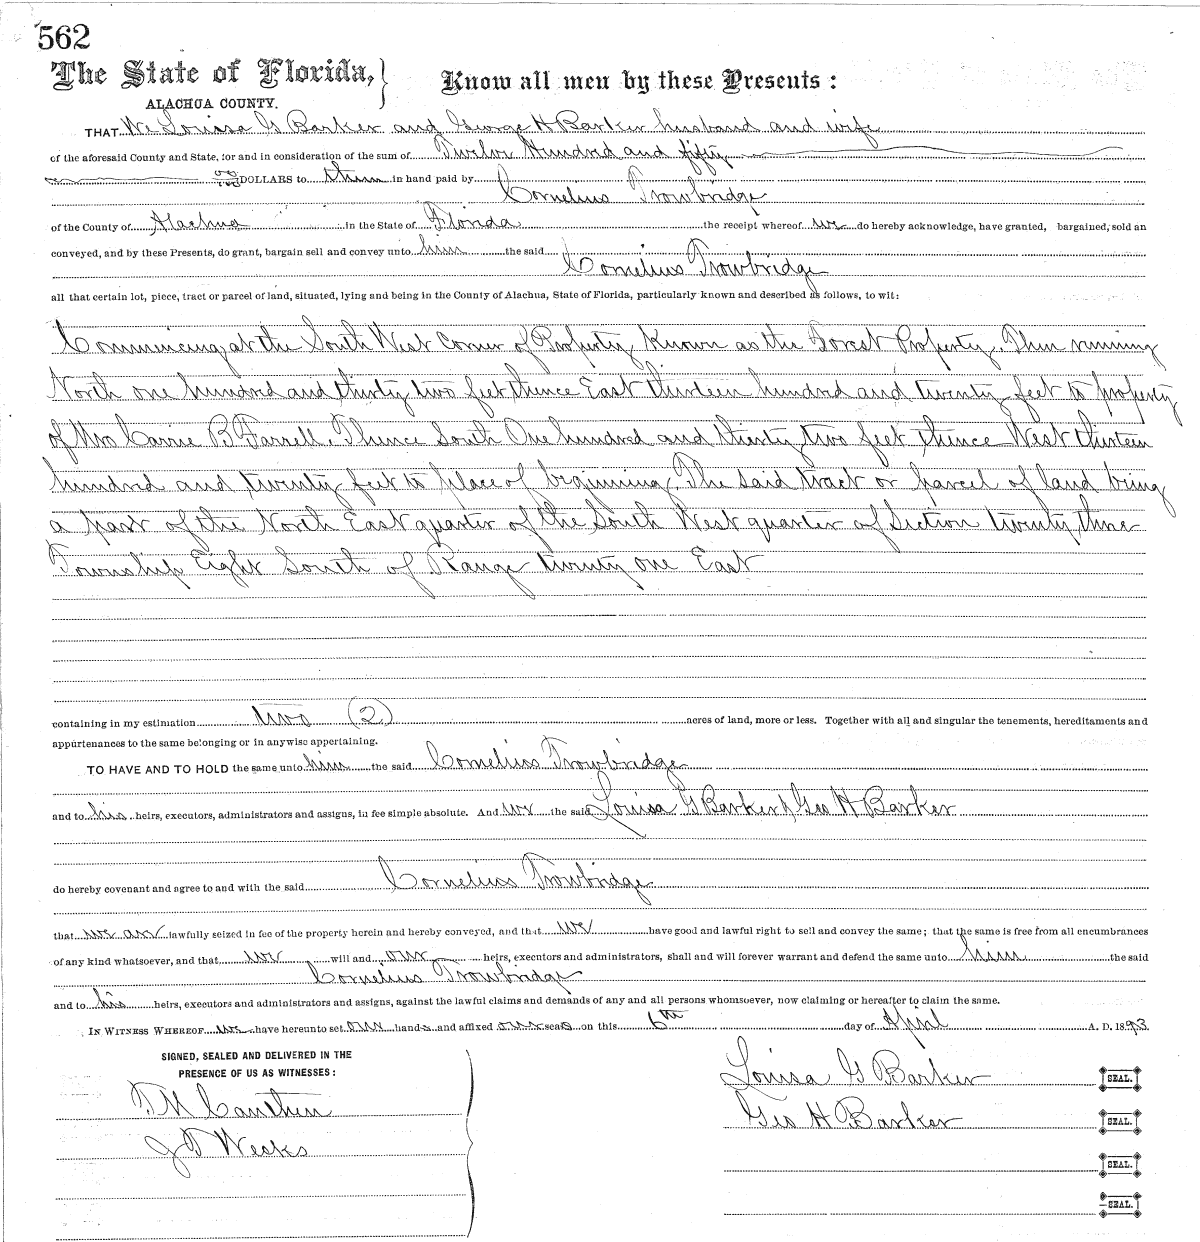 562
The State of Florida,
ALACHUA COUNTY.
Know all men by these Presents:
THAT We Louisa G Barker and George H Barker husband and wife
of the aforesaid County and State, for and in consideration of the sum of Twelve Hundred and fifty
DOLLARS to them in hand paid by
Cornelius Trowbridge
of the County of Alachua in the State of Florida the receipt whereof we do hereby acknowledge, have granted, bargained, sold an
conveyed, and by these Presents, do grant, bargain sell and convey unto him the said
Cornelius Trowbridge
all that certain lot, piece, tract or parcel of land, situated, lying and being in the County of Alachua, State of Florida, particularly known and described as follows, to wit:
Commencing at the South West Corner of Property Known as the Forest Property. Then running
North one hundred and thirty two feet thence East thirteen hundred and twenty feet to property
of Mrs Carrie B Farrell. Thence South One hundred and thirty two feet thence West thirteen
hundred and twenty feet to place of beginning. The said tract or parcel of land being
a part of the North East quarter of the South West quarter of Section twenty three
Township Eight South of Range twenty one East
containing in my estimation two (2) acres of land, more or less. Together with all and singular the tenements, hereditaments and
appurtenances to the same belonging or in anywise appertaining.
TO HAVE AND TO HOLD the same unto him the said Cornelius Trowbridge
and to his heirs, executors, administrators and assigns, in fee simple absolute. And we the said Louisa G Barker & Geo H Barker
do hereby covenant and agree to and with the said Cornelius Trowbridge
that we are lawfully seized in fee of the property herein and hereby conveyed, and that we have good and lawful right to sell and convey the same; that the same is free from all encumbrances
of any kind whatsoever, and that we will and our heirs, executors and administrators, shall and will forever warrant and defend the same unto him the said
Cornelius Trowbridge
and to his heirs, executors and administrators and assigns, against the lawful claims and demands of any and all persons whomsoever, now claiming or hereafter to claim the same.
IN WITNESS WHEREOF we have hereunto set our hands and affixed our seals on this 6th day of April A. D. 1893.
SIGNED, SEALED AND DELIVERED IN THE
PRESENCE OF US AS WITNESSES:
T M Cauthen
J T Weeks
Louisa G Barker SEAL.
Geo H Barker SEAL.
SEAL.
SEAL.